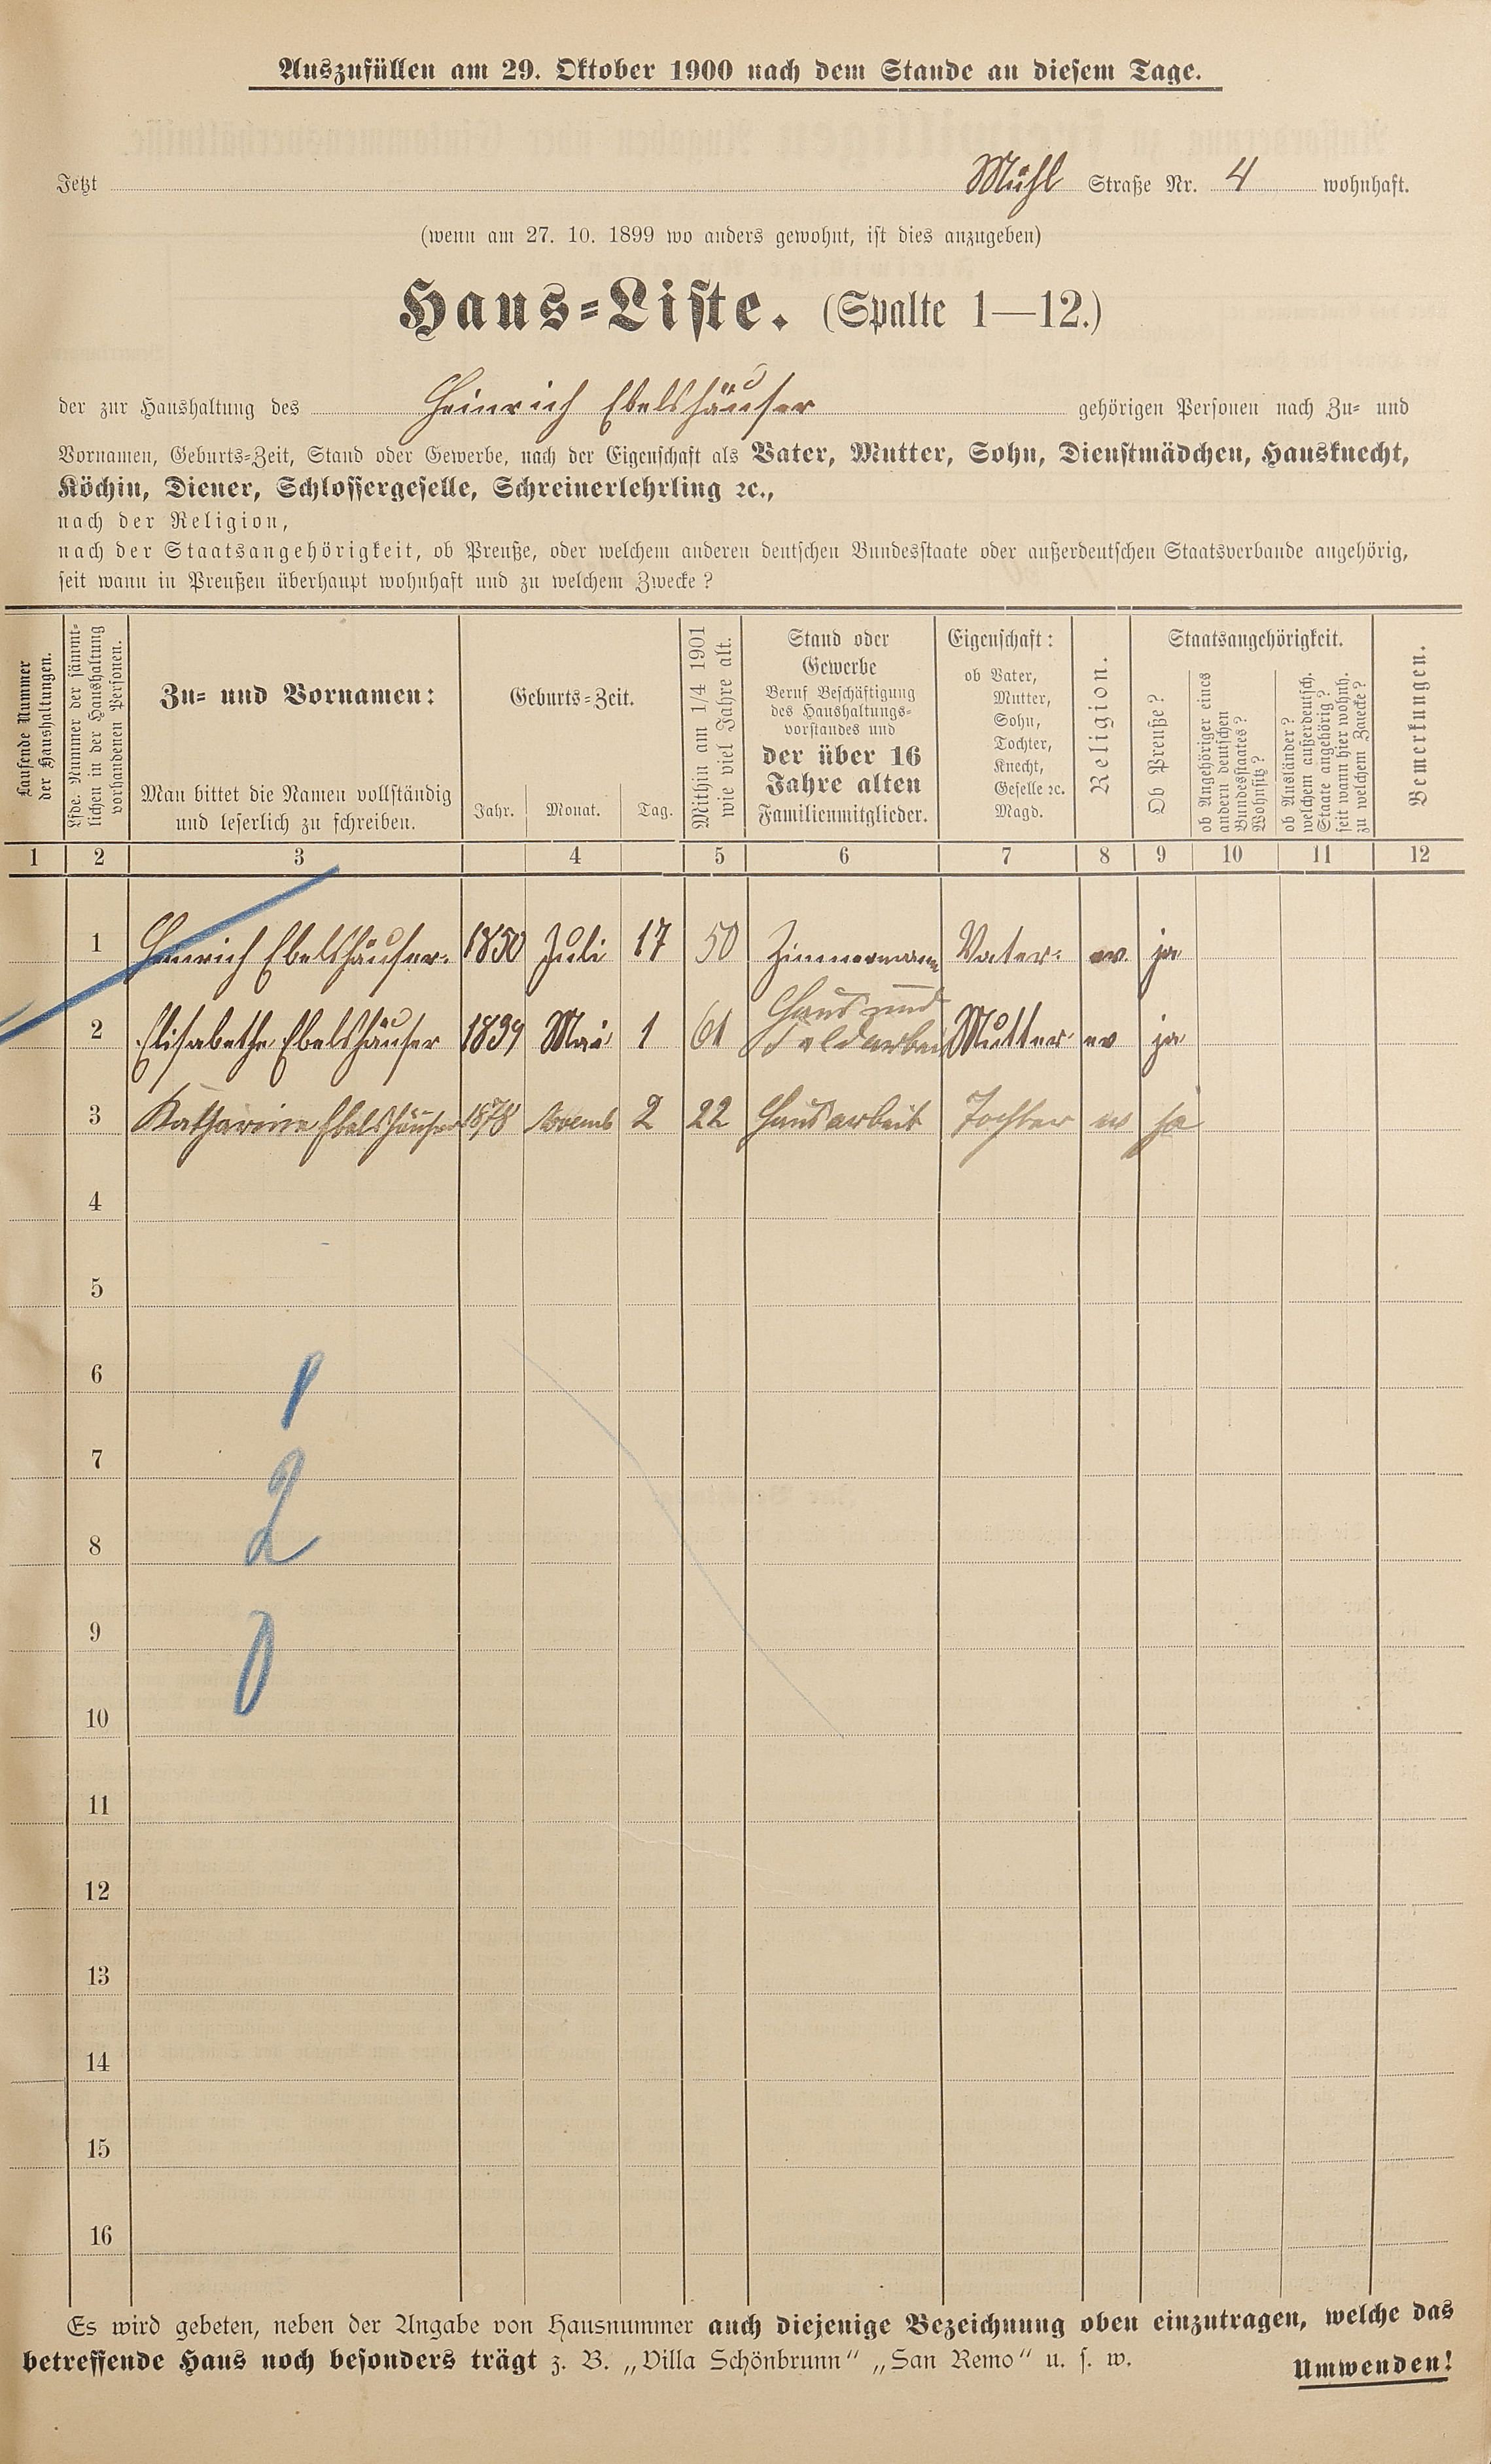 Auszufüllen am 29. Oktober 1900 nach dem Stande an diesem Tage.
Jetzt Mühl Straße Nr. 4 wohnhaft.
(wenn am 27. 10. 1899 wo anders gewohnt, ist dies anzugeben)
Haus=Liste. (Spalte 1—12.)
der zur Haushaltung des Heinrich Ebelshäuser gehörigen Personen nach Zu= und
Vornamen, Geburts=Zeit, Stand oder Gewerbe, nach der Eigenschaft als Vater, Mutter, Sohn, Dienstmädchen, Hausknecht,
Köchin, Diener, Schlossergeselle, Schreinerlehrling ꝛc.,
nach der Religion,
nach der Staatsangehörigkeit, ob Preuße, oder welchem anderen deutschen Bundesstaate oder außerdeutschen Staatsverbande angehörig,
seit wann in Preußen überhaupt wohnhaft und zu welchem Zwecke?
Laufende Nummer
der Haushaltungen.
Lfde. Nummer der sämmt=
lichen in der Haushaltung
vorhandenen Personen.
Zu= und Vornamen:
Man bittet die Namen vollständig
und leserlich zu schreiben.
Geburts=Zeit.
Jahr. Monat. Tag.
Mithin am 1/4 1901
wie viel Jahre alt.
Stand oder
Gewerbe
Beruf Beschäftigung
des Haushaltungs=
vorstandes und
der über 16
Jahre alten
Familienmitglieder.
Eigenschaft:
ob Vater,
Mutter,
Sohn,
Tochter,
Knecht,
Geselle ꝛc.
Magd.
Religion.
Staatsangehörigkeit.
Ob Preuße?
ob Angehöriger eines
andern deutschen
Bundesstaates?
Wohnsitz?
ob Ausländer?
welchem außerdeutsch.
Staate angehörig?
seit wann hier wohnh.
zu welchem Zwecke?
Bemerkungen.
1 2 3 4 5 6 7 8 9 10 11 12
1 Heinrich Ebelshäuser. 1850 Juli 17 50 Zimmermann Vater. ev. ja
2 Elisabethe Ebelshäuser 1839 Mai 1 61 Haus und Feldarbeit Mutter ev ja
3 Katharine Ebelshäuser 1878 Novemb 2 22 Hausarbeit Tochter ev ja
4
5
6
1
7
2
8
9
0
10
11
12
13
14
15
16
Es wird gebeten, neben der Angabe von Hausnummer auch diejenige Bezeichnung oben einzutragen, welche das
betreffende Haus noch besonders trägt z. B. „Villa Schönbrunn“ „San Remo“ u. s. w.
Umwenden!